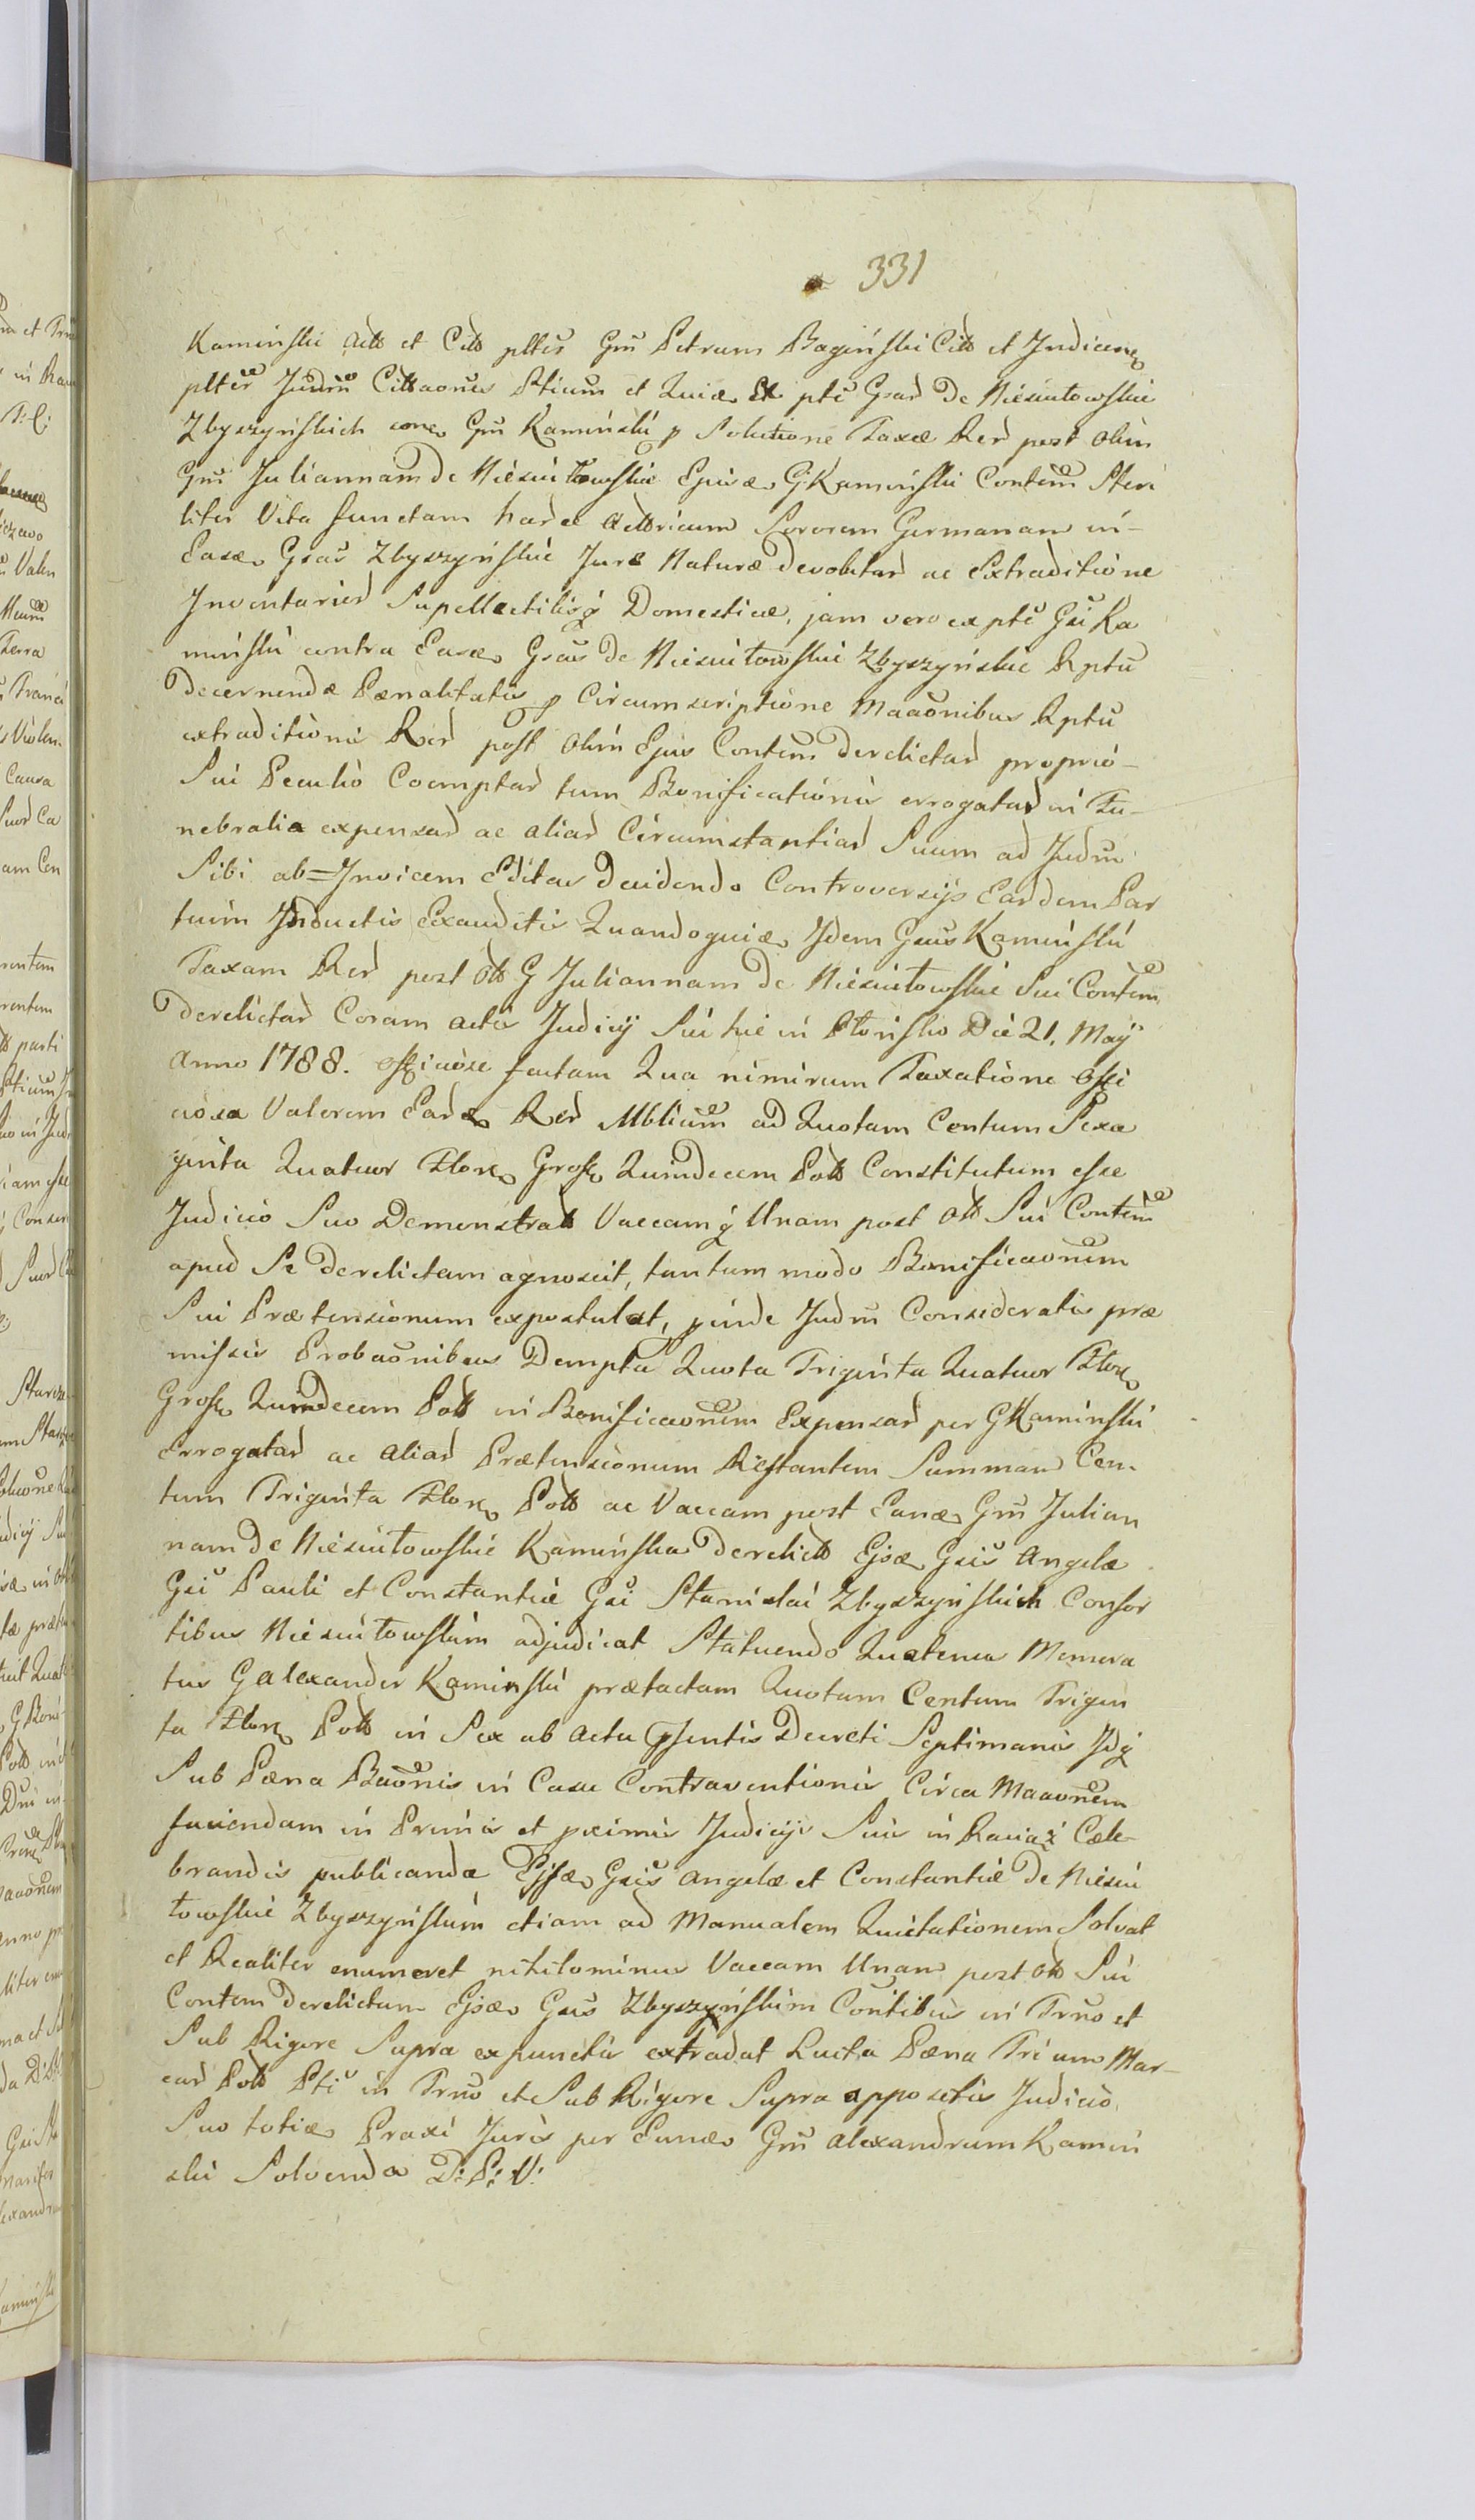 331
Kaminski Actt et Citt pltes Gm Petrum Baginski Citt et Judicem
pltes Judm Cittaones Ptium et Quia Ex pte Grar De Niesiułowskie
Zbyszyńskich cone Gm Kaminski p Solutione Taxæ Rer post olim
Gm Juliannam de Niesiułowskie Ejusæ G Kaminski Contem Steri
liter Vita functam hared Actricum Sororem Germanam in-
Easæ Gsas Zbyszyńskie Jure Naturæ devolutar ac Extraditione
Inventaried Supellectilisq Domesticæ, jam vero ex pte Gsi Ka
minski contra Easæ Gsas de Niesiułowskie Zbyszyńskie Rptu
decernendæ Pænalitatis p Circumscriptione Maaonibus Rptu
extraditionis Rer post olim Ejus Contem derelictar proprio-
Sui Peculio Coemptar tum Bonificationis errogatar in Fu-
nebralia expensar ac aliar Circumstantiar Suum ad Judm
Sibi ab=Invicem Editas Decidendo Controversijs Eardem Par
tium Inductis Exauditis Quandoquiæ Idem Gsus Kaminski
Taxam Rer post ott G Juliannam de Niesiułowskie Sui Contem
derelictar Coram actis Judicij Sui hic in Płońsko Die 21. Maij
Anno 1788. officiose factam Qua nimirum Taxatione offi
ciosa Valorem Earæ Rer Mblium ad Quotam Centum Sexa
ginta Quatuor Flor Gross Quindecim Poll Constitutum esse
Judicio Suo Demonstratt Vaccamq Unam post ott Sui Contem
apud Se derelictam agnoscit, tantum modo Bonificaonem
Sui Prætensionum expostulat, pinde Judm Consideratis præ
missis Probaonibus Dempta Quota Triginta Quatuor Flor
Gross Quindecem Poll in Bonificaonem Expensar per G Kaminski
Errogatar ac aliar Prætensionum Restantem Summam Cen-
tum Triginta Flor Poll ac Vaccam post Eanæ Gm Julian
nam de Niesiułowskie Kaminska derelictt Ejsæ Gsis Angelæ
Gsi Pauli et Constantiæ Gsi Stanislai Zbyszyńskich Consor
tibus Niesiułowskim adjudicat Statuendo Quatenus Memora
tus G Alexander Kaminski prætactam Quotam Centum Trigin
ta Flor Poll in Sex ab Actu psentis Decreti Septimanis Idq
Sub Pæna Baonis in Casu Contraventionis Circa Maaonem
faciendam in Primis et pximis Judicijs Suis in Raciąż Cæle-
brandis publicanda Ejsæ Gsis Angelæ et Constantiæ de Niesiu
łowskie Zbyszyńskim etiam ad Manualem Quietationem Solvat
et Realiter enumeret nihilominus Vaccam Unam post ott Sui
Contem Derelictam Ejsæ Gsis Zbyszyńskim Contibus in Trno et
Sub Rigore Supra expunctis extradat Lucta Pæna Trium Mar-
car Poll Pti in Trno et Sub Rigore Supra appositis Judicio
Suo totiæ Praxi Juris per Eunæ Gm Alexandrum Kamin
ski Solvenda D: P: V: